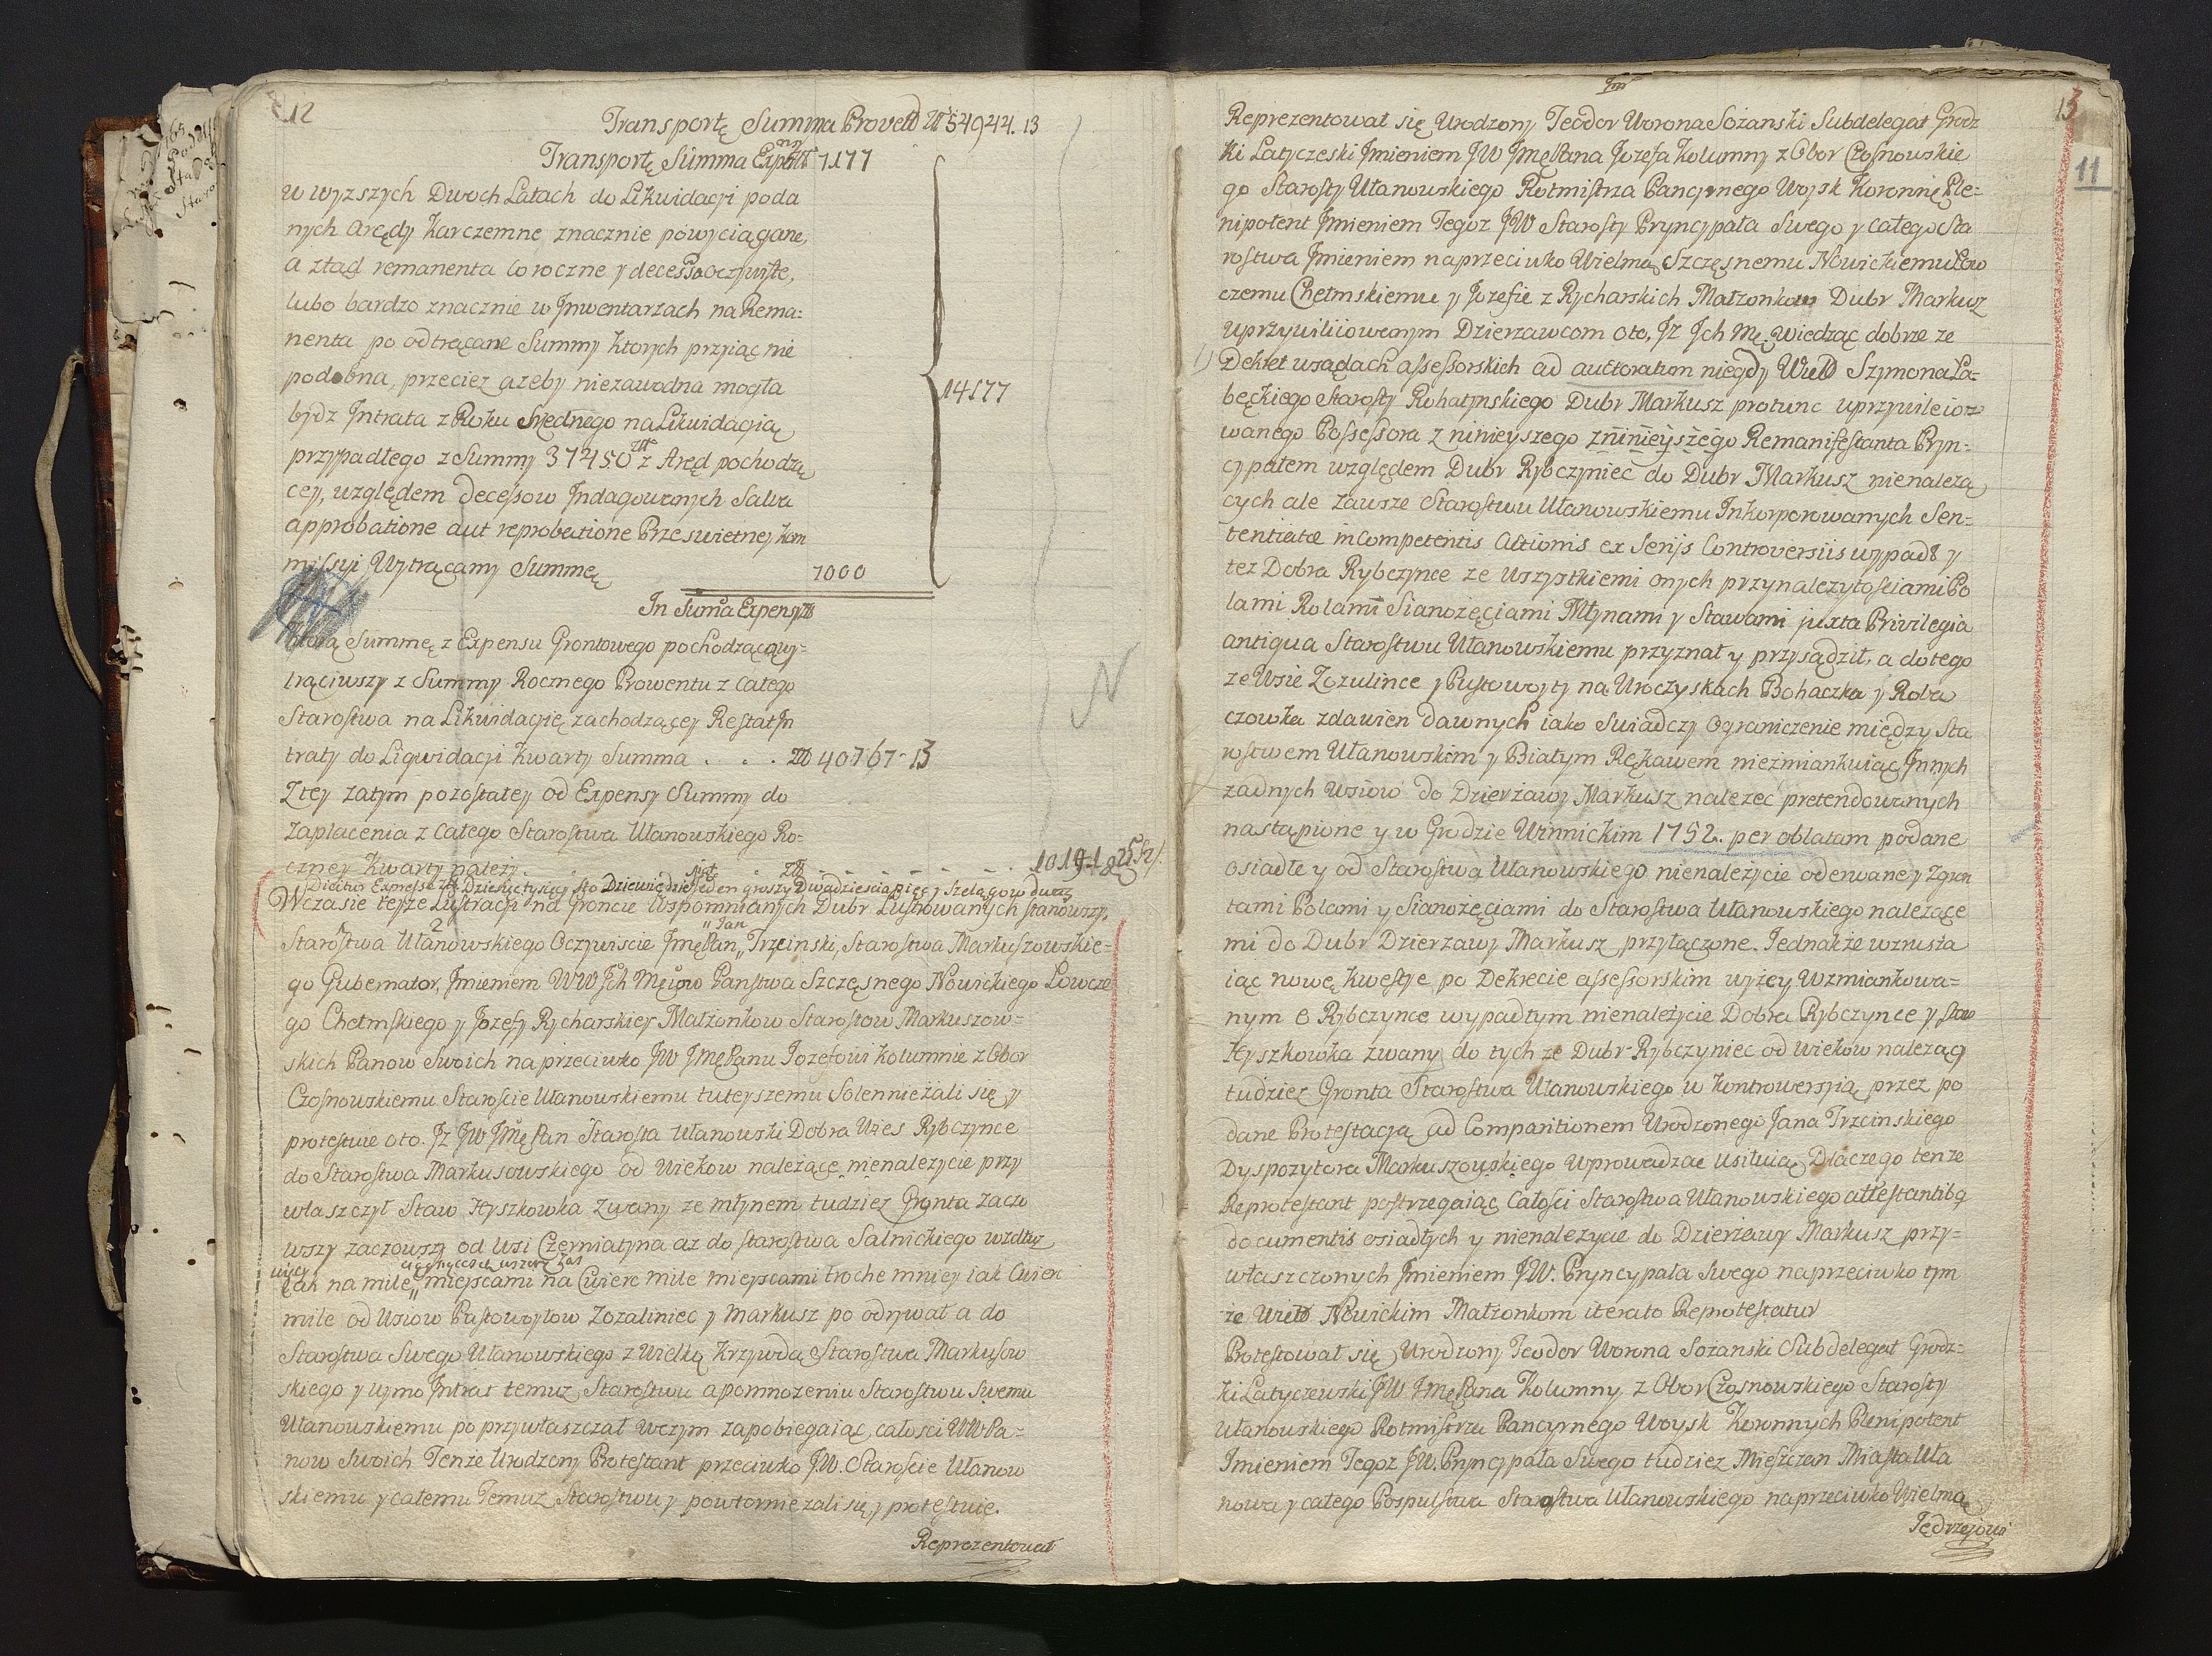 12
Transportę Summa Proved Zł 54944. 13
Transportę Summa Exp Zł 7177
w wyzszych Dwoch Latach do Likwidacyi poda
nych Arędy Karczemne znacznie powyciągane,
a ztąd remanenta coroczne y decessa oczywiste,
lubo bardzo znacznie w Jnwentarzach na Rema:
nenta po odtrącane Summy Ktorych przyiąc nie
podobna, przeciez azeby niezawodna mogła
bydz Jntrata z Roku Srednego na Likwidacyią
przypadłego z Summy 37450 Zł z Aręd pochodzą
cey, względem decessow Jndagowanych Salva
approbatione aut reprobatione Przeswietney Kom
missyi Wytrącamy Summę 7000
14177
In Suma Expensy Zł
Ktorą Summę z Expensu Grontowego pochodzącą wy=
trąciwszy z Summy Rocznego Prowentu z Całego
Starostwa na Likwidacyię zachodzącey Restat Jn
traty do Liqwidacyi Kwarty Summa . . . Zł 40767 - 13
Z tey zatym pozostałey od Expensy Summy do
Zapłacenia z Całego Starostwa Ułanowskiego Ro=
czney Kwarty należy
Dziesięc tysięcy sto Dziewiędziesiąt jeden groszy Dwadziescia pięc y szelągow dwa
W czasie teyze Lustracyi na Groncie Wspomnianych Dubr Lustrowanych stanowszy,
Starostwa Ułanowskiego Oczywiscie Jmę Pan „Jan Trzcinski, Starostwa Markuszowskie=
go Gubernator, Jmieniem WW Jch Mciow Panstwa Szczęsnego Nowickiego Łowcze
go Chełmskiego y Jozefy Rycharskiey Małżonkow Starostow Markuszow=
skich Panow Swoich na przeciwko JW Jmę Panu Jozefowi Kolumnie z Obor
Czosnowskiemu Staroscie Ułanowskiemu tuteyszemu Solennie żali się y
protestuie oto. Jz JW Jmę Pan Starosta Ułanowski Dobra Wies Rybczynce
do Starostwa Markusowskiego od Wiekow należące nienależycie przy
właszczył Staw Hyszkowka Zwany ze młynem tudziez Gronta zaczo
wszy zaczowszy od Wsi Czerniatyna az do starostwa Salnickiego wzdłuz
więcy iak na mile „ciągnących wszerz zas miejscami na Cwierc mile mieyscami troche mniey iak Cwierc
mile od Wsiow Pustowoytow Zozaliniec y Markusz po odrywał a do
Starostwa Swego Ułanowskiego z Wielką Krzywdą Starostwa Markusow
skiego y uymo Jntrat temuz Starostwu a pomnozeniu Starostwu Swemu
Ułanowskiemu po przywłaszczał wczym zapobiegaiąc całosci WW Pa=
now Swoich Tenże Urodzony Protestant przeciwko JW. Staroscie Ułanow
skiemu y całemu Temuz Starostwu y powtornie zali się y protestuie.
Reprezentował
13
11
Reprezentował się Urodzony Teodor Worona Sożanski Subdelegat Grodz
ki Latyczeski Jmieniem JW Jmę Pana Jozefa Kolumny z Obor Czosnowskie
go Starosty Ułanowskiego Rotmistrza Pancyrnego Woysk Koronnę Ple=
nipotent Jmieniem Tegoz JW Starosty Pryncypała Swego y całego Sta
rostwa Jmieniem naprzeciwko Wielmą Szczęsnemu Nowickiemu Łow
czemu Chełmskiemu y Jozefie z Rycharskich Małzonkom Dubr Markusz
uprzywiliiowanym Dzierzawcom oto, Jz Jch Mę wiedząc dobrze ze
Dekret wsądach assessorskich ad auctoratum niegdy Wiel Szymona Ła=
bęckiego Starosty Rohatynskiego Dubr Markusz protunc uprzywileio=
wanego Possessora z ninieyszego z ninieyszego Remanifestanta Pryn=
cypałem względem Dubr Rybczyniec do Dubr Markusz nienalezą
cych ale zawsze Starostwu Ułanowskiemu Jnkorporowanych Sen=
tentiatæ incompetentis actionis ex Serijs Controversiis wypadł y
tez Dobra Rybczynce ze Wszystkiemi onych przynalezytosciami Po
lami Rolami Sianożęciami Młynami y Stawami juxta Privilegia
antiqua Starostwu Ułanowskiemu przyznał y przysądził, a do tego
ze Wsie Zozulince y Pustowoyty na Uroczyskach Bohaczka y Roba
czowka zdawien dawnych iako Swiadczy Ograniczenie między Sta
rostwem Ułanowskim y Białym Rękawem niezmiankuiąc Jnnych
zadnych Wsiow do Dzierżawy Markusz nalezec pretendowanych
nastąpione y w Grodzie Winnickim 1752. per oblatam podane
osiadłe y od Starostwa Ułanowskiego nienalezycie oderwane y Zgron
tami Polami y Sianożęciami do Starostwa Ułanowskiego należące
mi do Dubr Dzierzawy Markusz przyłączone. Jednakże wzrusza
iąc nowę kwestye po Dekrecie assessorskim wyżey Wzmiankowa=
nym o Rybczynce wypadłym nienależycie Dobra Rybczynce y staw
Hyszkowka zwany do tych ze Dubr Rybczyniec od wiekow należący
tudziez Gronta Starostwa Ułanowskiego w kontrowersyią przez po
dane Protestacyą ad Comparitionem Urodzonego Jana Trzcinskiego
Dyspozytora Markuszowskiego Wprowadzac usiłuią Dlaczego tenze
Reprotestant postrzegaiąc Całosci Starostwa Ułanowskiego attestantibą
documentis osiadłych y nienalezycie do Dzierżawy Markusz przy=
właszczonych Jmieniem JW. Pryncypała Swego naprzeciwko tym
ze Wiel Nowickim Małzonkom iterato Reprotestatur
Protestował się Urodzony Teodor Worona Sożanski Subdelegat Grodz=
ki Latyczewski JW Jmę Pana Kolumny z Obor Czosnowskiego Starosty
Ułanowskiego Rotmistrza Pancyrnego Woysk Koronnych Plenipotent
Jmieniem Tegoz JW. Pryncypała Swego tudziez Mieszczan Miasta Uła
nowa y całego Pospulstwa Starostwa Ułanowskiego naprzeciwko Wielmą
Jędrzejowi